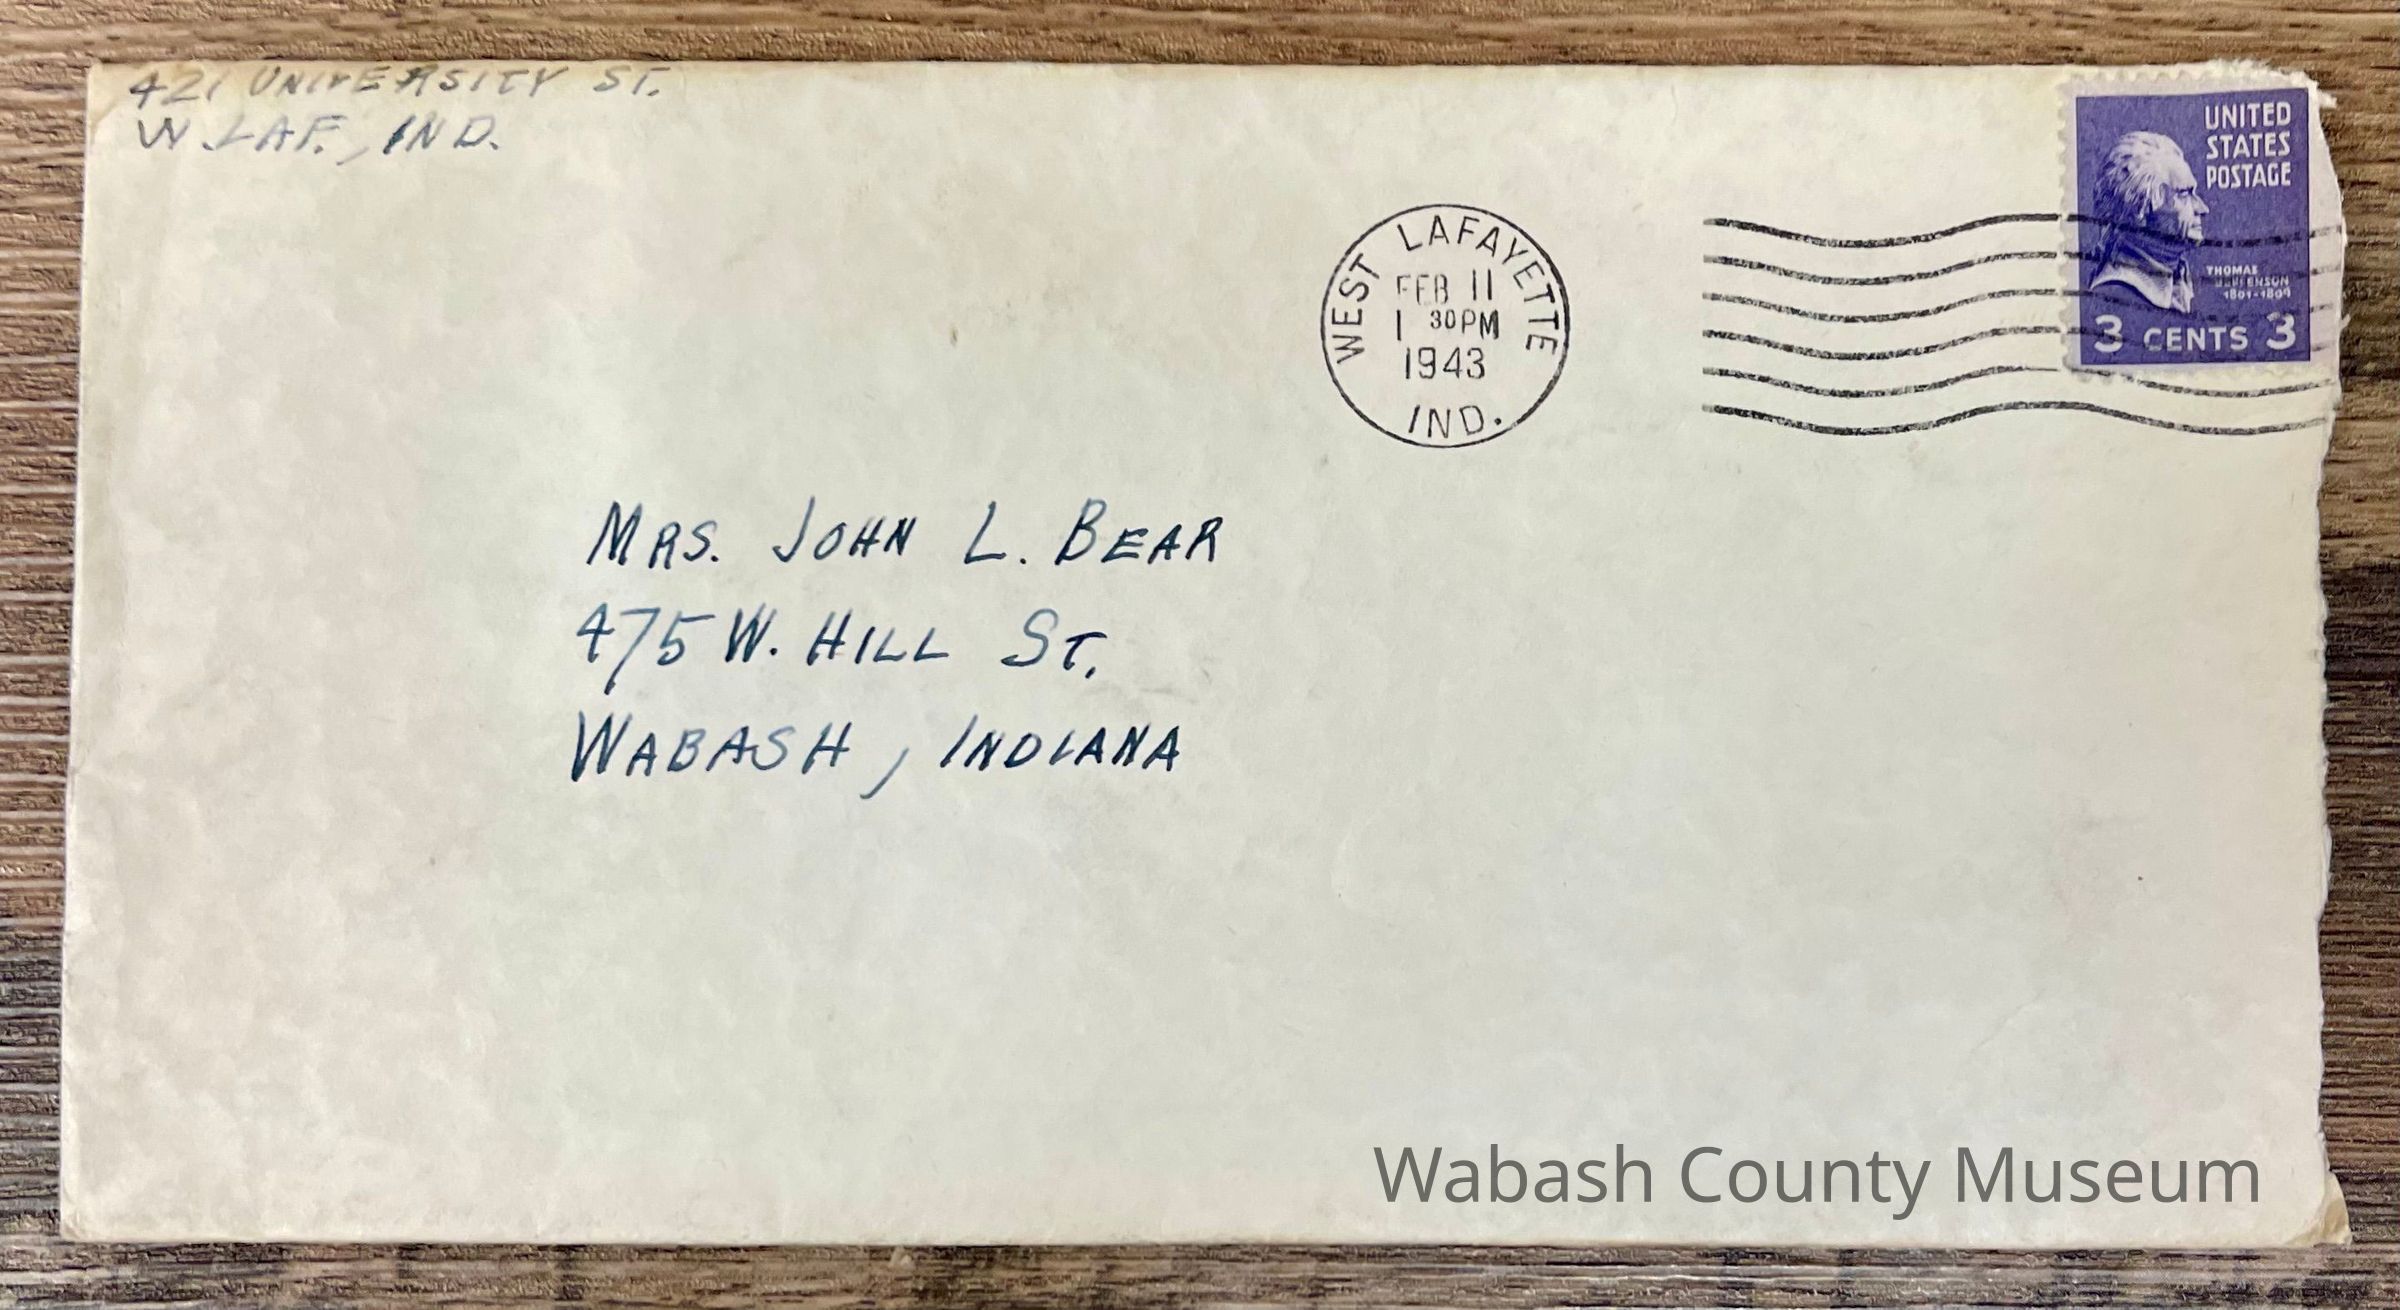 421 UNIVERSITY ST.
W. LAF., IND.
UNITED
STATES
POSTAGE
THOMAS
JEFFERSON
1801-1809
3 CENTS 3
WEST LAFAYETTE
FEB 11
1 30PM
1943
IND.
MRS. JOHN L. BEAR
475 W. HILL ST.
WABASH, INDIANA
Wabash County Museum